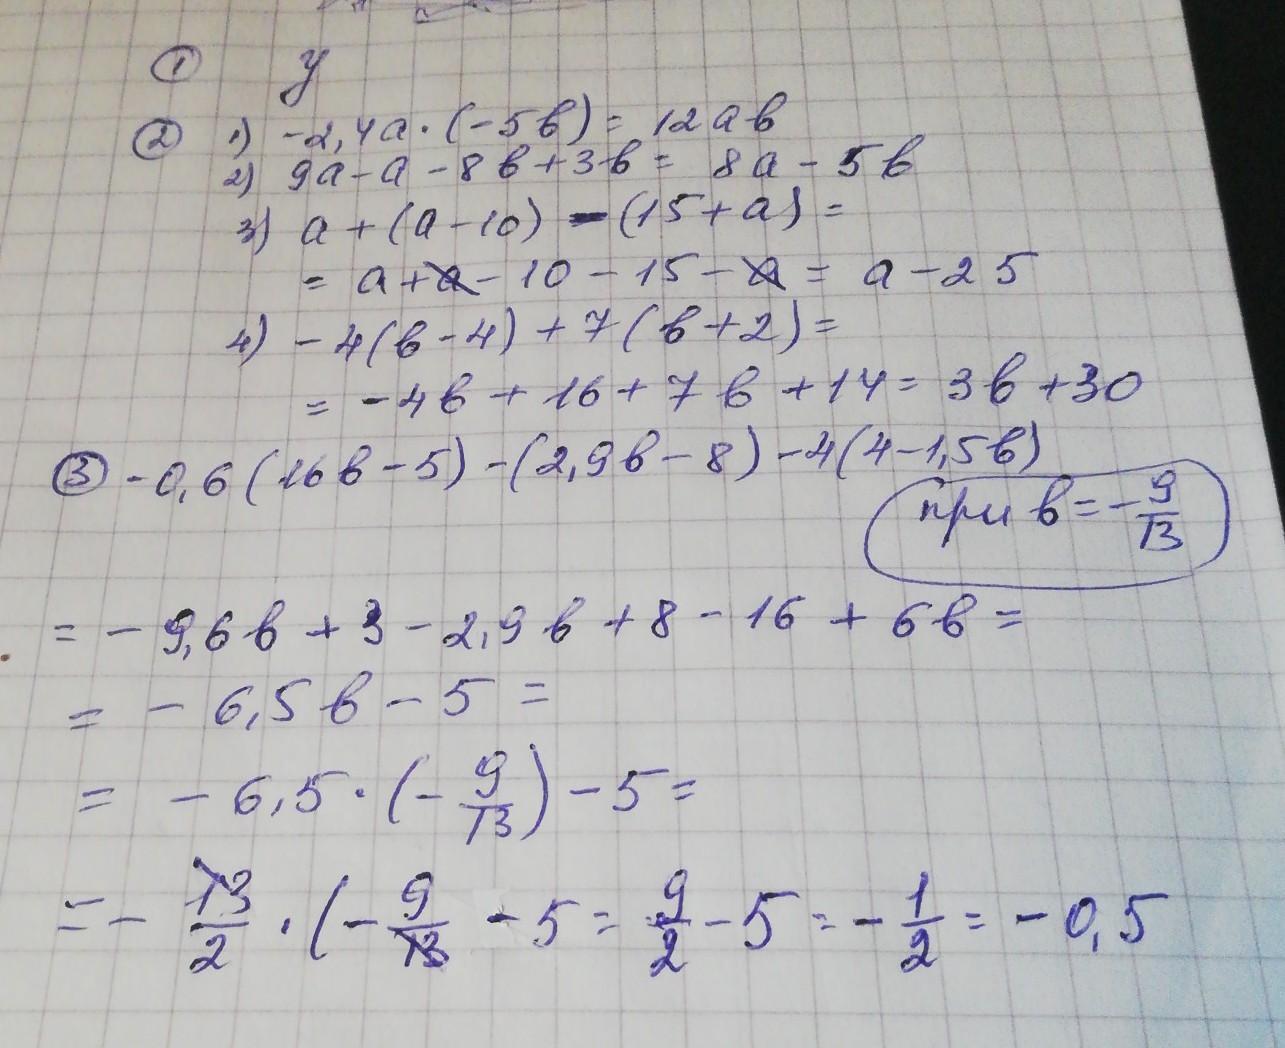 ① y
② 1) -2,4a·(-5b)= 12ab
2) 9a-a-8b+3b= 8a-5b
3) a+(a-10)-(15+a)=
= a+a-10-15-a= a-25
4) -4(b-4)+7(b+2)=
= -4b+16+7b+14= 3b+30
③ -0,6(16b-5)-(2,9b-8)-4(4-1,5b)
при b=-9/13
= -9,6b+3-2,9b+8-16+6b=
= -6,5b-5=
= -6,5·(-9/13)-5=
= -13/2·(-9/13 -5= 9/2-5=-1/2= -0,5